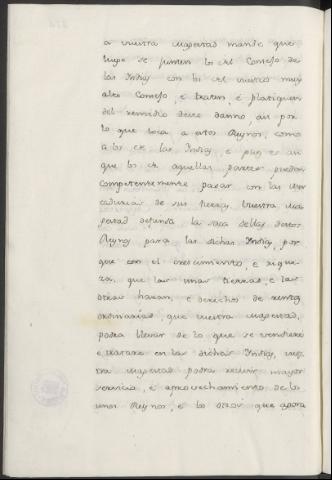 a vuestra magestad mande que
luego se junten los del Consejo de
las Indias con los del vuestro muy
alto Consejo, e traten, e platiquen
del remedio deste danno, asi por
lo que toca a estos Reynos, como
a los de las Indias, e pues es asi
que los de aquellas partes pueden
competentemente pasar con las mer
cadurias de sus tierras, vuestra ma
gestad defienda la saca dellas destos
Reynos para las dichas Indias, por
que con el crescimiento, e rique
za, que las unas tierras, e las
otras haran, e derechos de rentas
ordinarias, que vuestra magestad,
podra llevar de lo que se vendiere
e tratare en las dichas Indias, vues
tra magestad podra recivir mayor
servicio, e aprovechamiento de los
unos Reynos, e los otros que agora